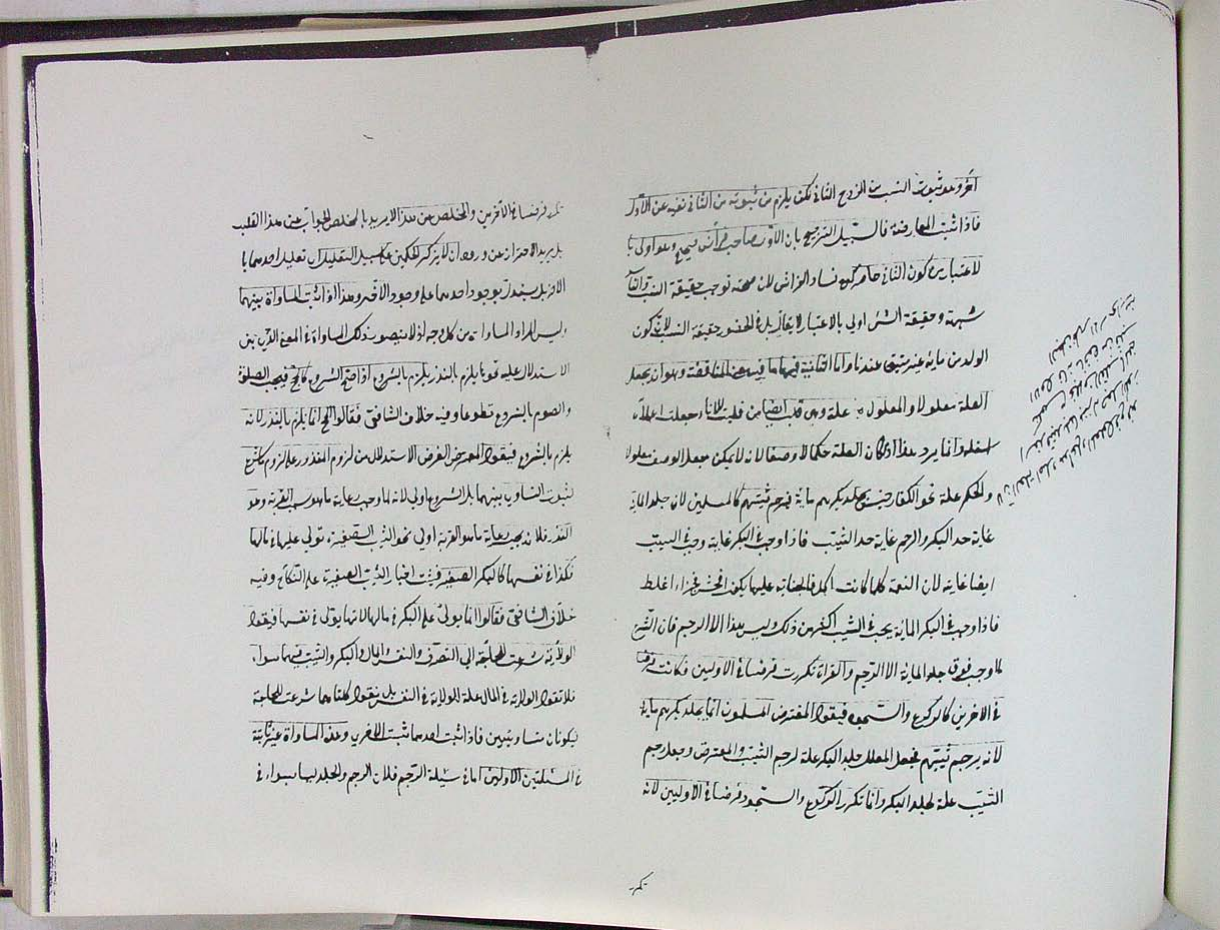 آخر وهو ثبوت النسب من الزوج الثاني لكن يلزم من ثبوته من الثاني نفيه عن الأول
فاذا ثبت المعارضة فالسبيل الترجيح بان الاول صاحب فراش صحيح وهو اولى با
لاعتبار من كون الثاني حاضرا مع فساد الفراش لان صحته توجب حقيقة النسب والفاسد
شبهة وحقيقة الشئ اولى بالاعتبار لا يقال بل في الحضور حقيقة النسب لانه يكون
الولد من مائه عند عندنا واما الثانية فيها ما فيه معنى المناقضة وهو ان يجعل
العلة معلولا والمعلول علة وهي قلب ايضا من قلبت الاناء جعلت اعلاه
اسفله وانما يرد هذا اذا كان العلة حكما لا وصفا لانه لا يمكن جعل الوصف معلولا
والحكم علة نحو الكفار جنس يجلد بكرهم ماية فيرجم ثيبهم كالمسلمين لان جلد الماية
غاية حد البكر والرجم غاية حد الثيب فاذا وجب في البكر غايته وجب في الثيب
ايضا غايته لان النعمة كلما كانت اكمل فالجناية عليها يكون افحش فجزاؤه اغلظ
فاذا وجب في البكر الماية يجب في الثيب اكثر من ذلك وليس هذا الا الرجم فان الشرع
لما وجب فوق جلد الماية الا الرجم والقراءة تكررت فرضا في الاوليين فكانت فرضا
في الاخرين كالركوع والسجود فيقول المعترض المسلمون انما يجلد بكرهم ماية
لانه يرجم ثيبهم فجعل المعلل جلد البكر علة لرجم الثيب والمعترض جعل رجم
الثيب علة لجلد البكر وانما تكرر الركوع والسجود فرضا في الاوليين لانه
تكرر فرضا في الآخرين والمخلص عن هذا لا يريد بالمخلص الجواب عن هذا القلب
بل يريد الاحتراز عن وروده ان لا يذكر الحكمين على سبيل التعليل اي تعليل احدهما با
لاخر بل يستدل بوجود احدهما على وجود الاخر وهذا اذا ثبت المساواة بينهما
وليس المراد المساواة من كل وجه اذ لا يتصور ذلك بل المساواة في المعنى الذي بني
الاستدلال عليه نحو ما يلزم بالنذر يلزم بالشروع اذا صح الشروع كالحج فيجب الصلوة
والصوم بالشروع تطوعا وفيه خلاف الشافعي فقالوا الحج انما يلزم بالنذر لانه
يلزم بالشروع فيقول الغرض الاستدلال من لزوم المنذور على لزوم ما شرع
لثبوت التساوي بينهما بل الشروع اولى لانه لما وجب رعاية ما هو سبب القربة وهو
النذر فلان يجب رعاية ما هو القربة اولى نحو الثيب الصغيرة يولى عليها في مالها
فكذا في نفسها كالبكر الصغيرة فيثبت اجبار الثيب الصغيرة على النكاح وفيه
خلاف الشافعي فقالوا انما يولى على البكر في مالها لانها يولى في نفسها فيقول
الولاية شرعت للحاجة الى التصرف والنفس والمال والبكر والثيب فيهما سواء
فلا نقول الولاية في المال علة للولاية في النفس بل نقول كلتاهما شرعت للحاجة
فيكونان متساويتين فاذا ثبت احدهما ثبت الاخرى وهذه المساواة غير ثابتة
في المسئلتين الاوليين اما في مسئلة الرجم فلان الرجم والجلد ليسا بسواء في
تكرر